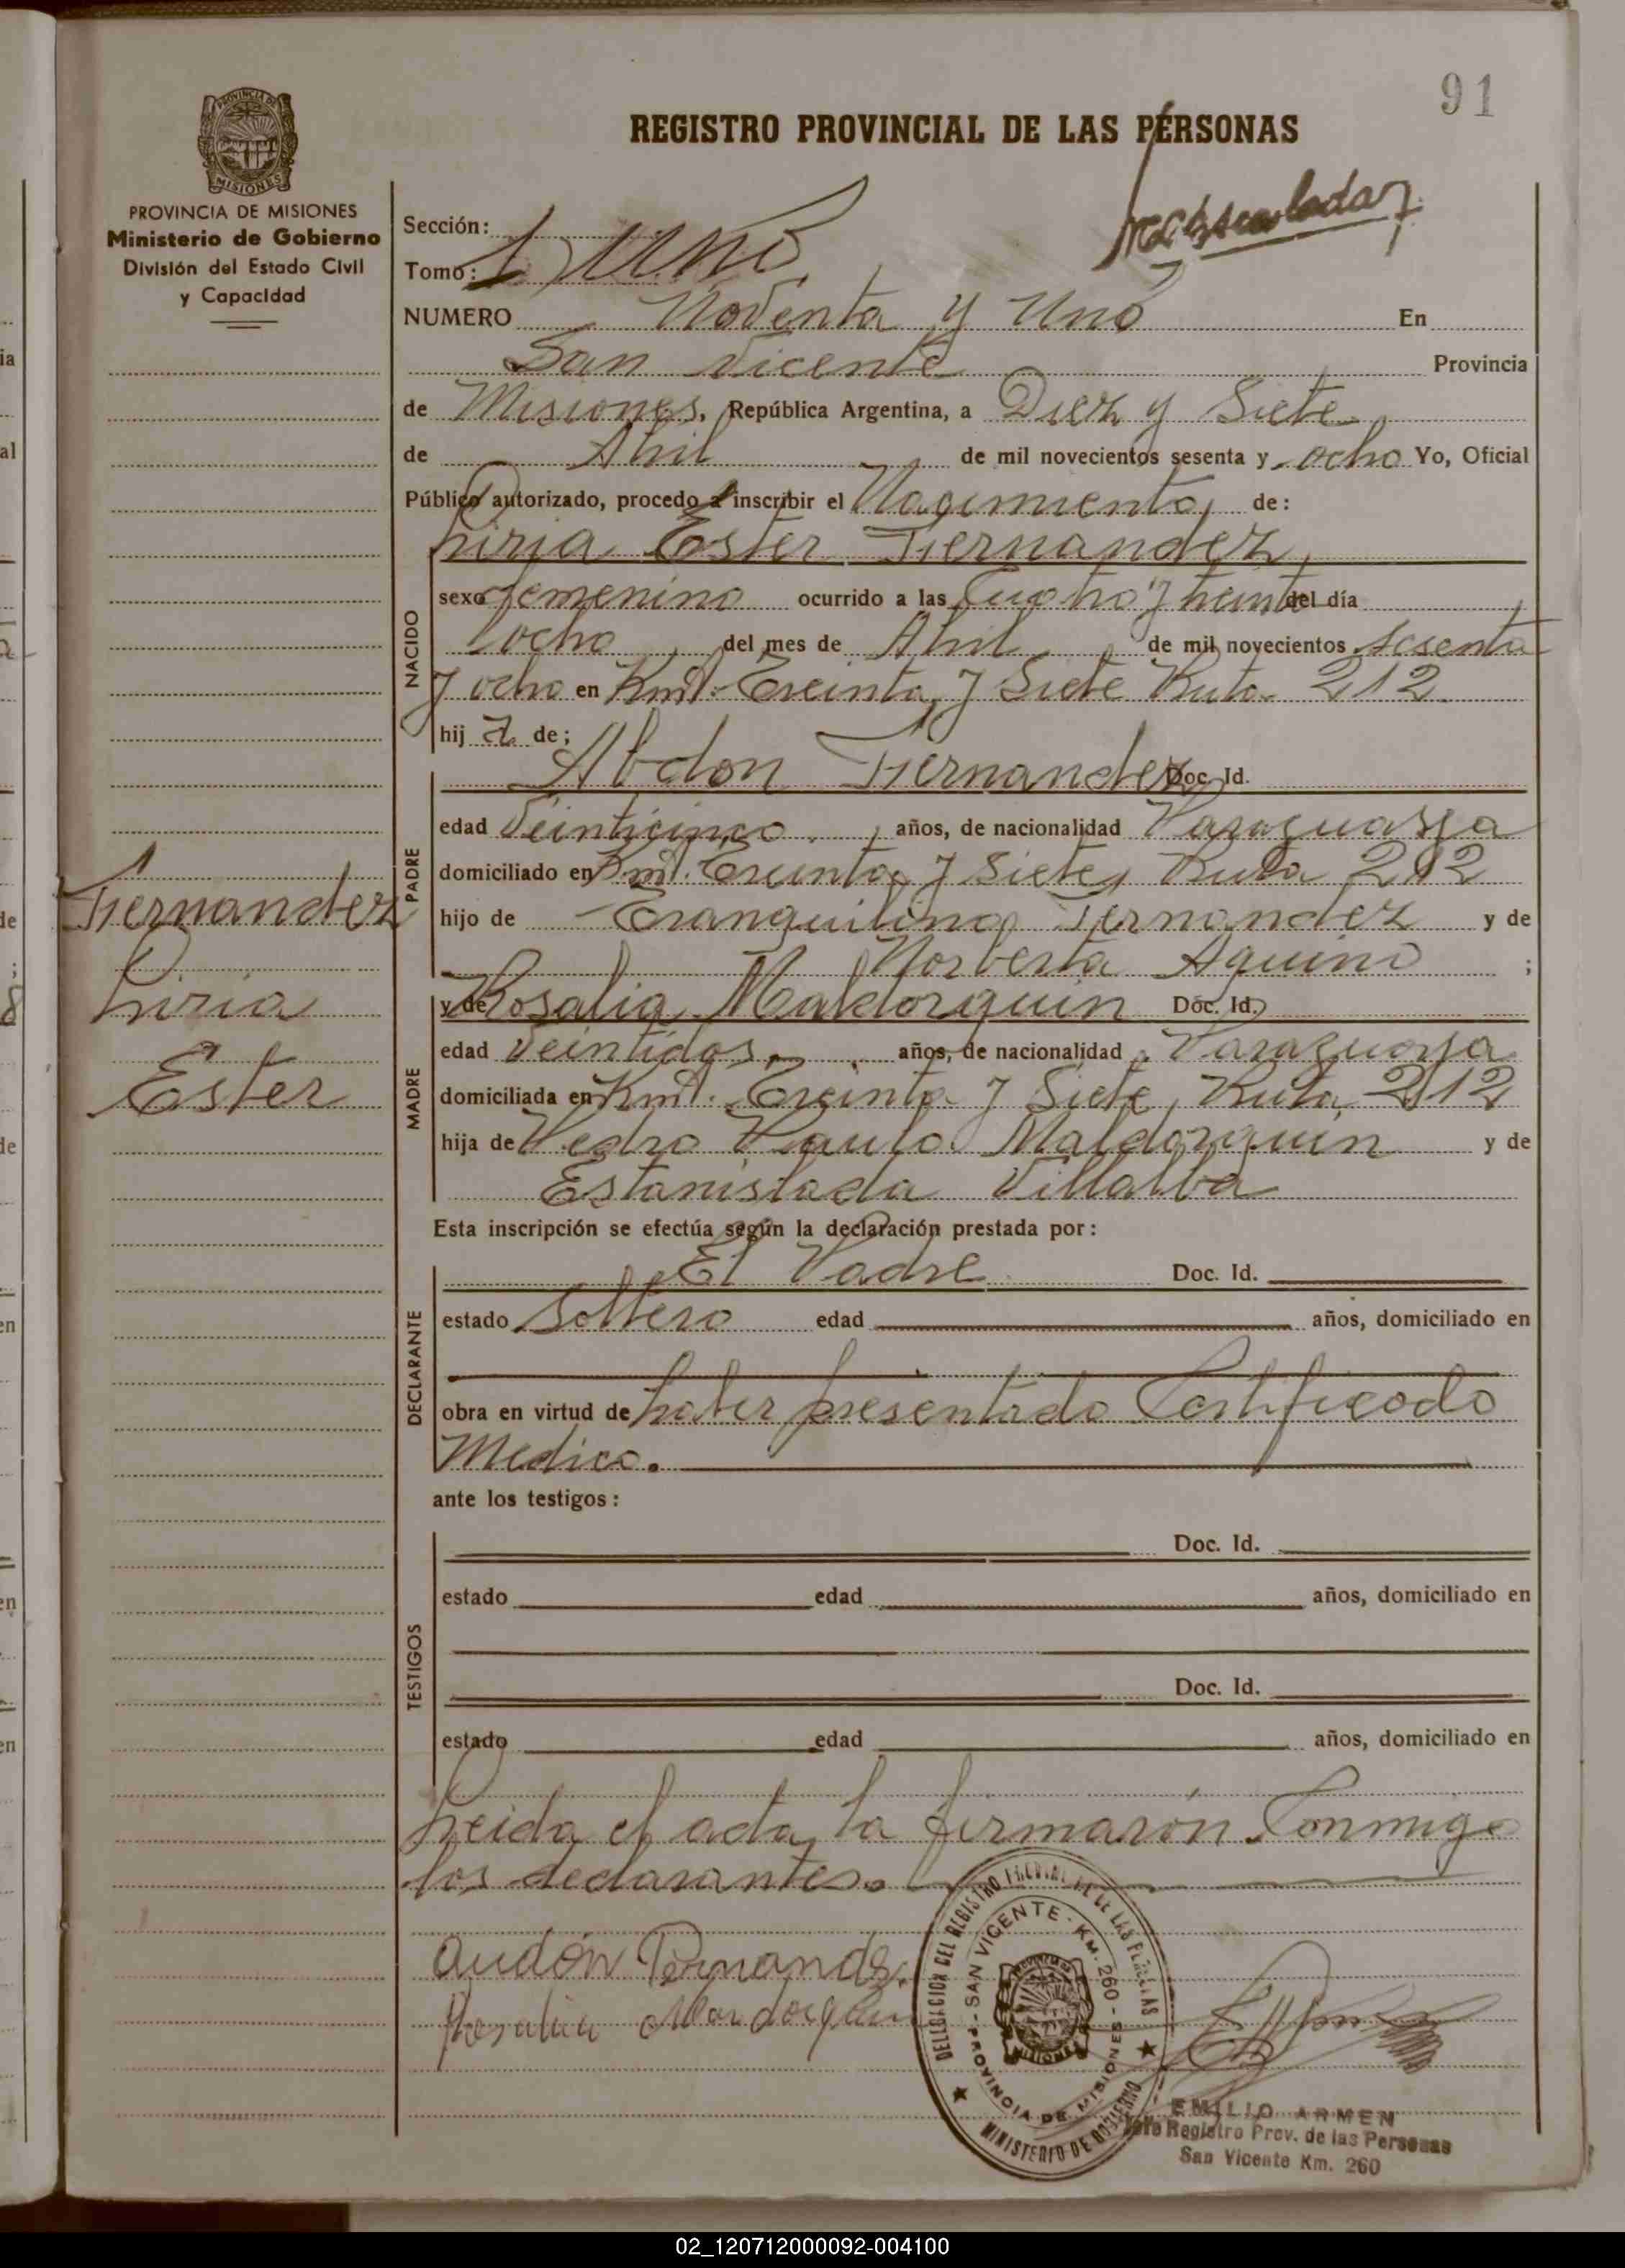 91
REGISTRO PROVINCIAL DE LAS PERSONAS
PROVINCIA DE
MISIONES
PROVINCIA DE MISIONES
Ministerio de Gobierno
División del Estado Civil
y Capacidad
Sección:
Tomo: 1) Uno
NUMERO Noventa y Uno En
San Vicente Provincia
de Misiones, República Argentina, a Diez y Siete
de Abril de mil novecientos sesenta y ocho Yo, Oficial
Público autorizado, procedo a inscribir el Nacimiento de:
Liria Ester Fernandez
NACIDO
sexo femenino ocurrido a las Cuatro y treinta del día
ocho del mes de Abril de mil novecientos sesenta
y ocho en Kmt. Treinta y Siete Ruta 212
hij a de:
Abdon Fernandez Doc. Id.
PADRE
edad Veinticinco años, de nacionalidad Paraguaya
domiciliado en Kmt. Treinta y Siete, Ruta 212
hijo de Tranquilino Fernandez y de
Norberta Aquino ;
Fernandez
Liria
Ester
MADRE
y de Rosalia Maldorquin Doc. Id.
edad Veintidos años, de nacionalidad Paraguaya
domiciliada en Kmt. Treinta y Siete, Ruta 212
hija de Pedro Paulo Maldorquin y de
Estanislada Villalba
Esta inscripción se efectúa según la declaración prestada por:
DECLARANTE
El Padre Doc. Id.
estado Soltero edad años, domiciliado en
obra en virtud de haber presentado Certificado
Medico.
ante los testigos:
TESTIGOS
Doc. Id.
estado edad años, domiciliado en
Doc. Id.
estado edad años, domiciliado en
Leida el acta, la firmarón Conmigo
los declarantes.
Audón Fernandz.
Rosalia Mardorquin
DELEGACION DEL REGISTRO PROVINCIAL DE LAS PERSONAS
SAN VICENTE - KM. 260 -
PROVINCIA DE MISIONES
MINISTERIO DE GOBIERNO
MISIONES
EMILIO ARMEN
Jefe Registro Prov. de las Personas
San Vicente Km. 260
02_120712000092-004100